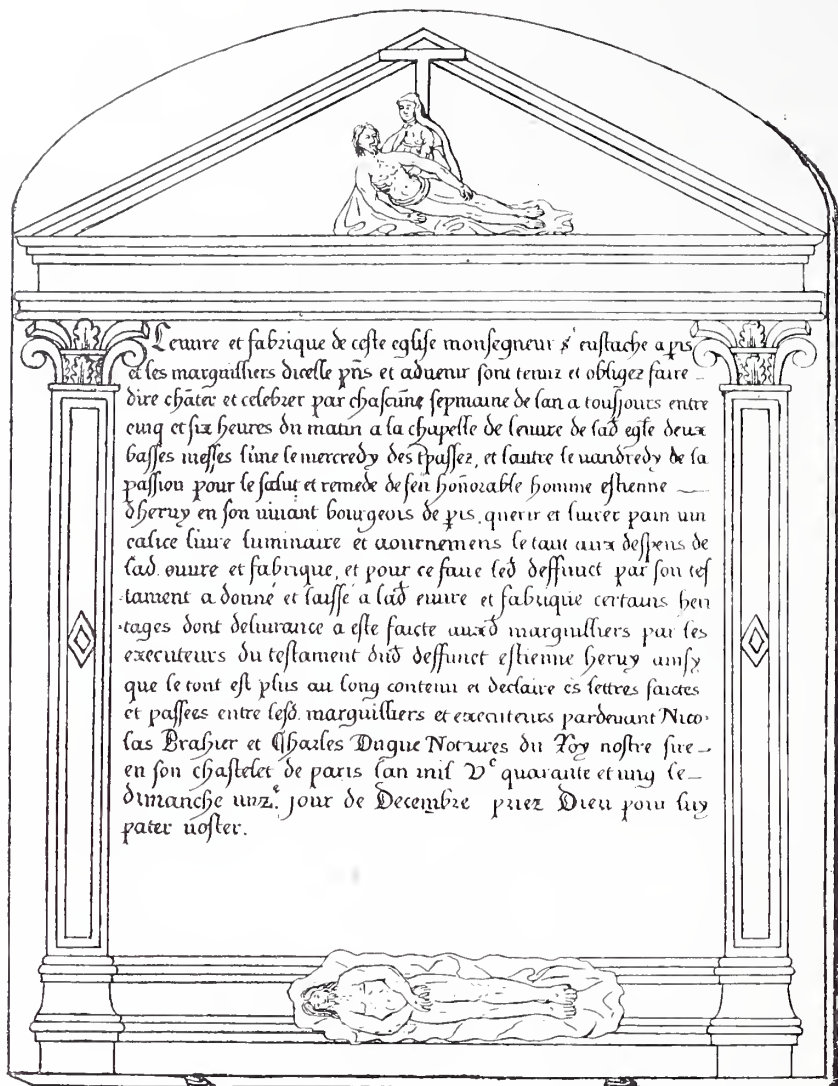 Leuure et fabrique de ceste eglise monsegneur sᵗ eustache a p̄is
et les marguilliers dicelle pñs et aduenir sont tenuz et obligez faire
dire chāter et celebrer par chascune sepmaine de lan a tousjours entre
cinq et six heures du matin a la chapelle de leuure de lad egle deux
basses messes lune le mercredy des tpassez, et lautre le vandredy de la
passion pour le salut et remede de feu honnorable homme estienne
dheruy en son viuant bourgeois de p̄is, querir et liurer pain vin
calice liure luminaire et aournemens le tout aux despens de
lad. euure et fabrique, et pour ce faire led deffunct par son tes
tament a donné et laissé a lad euure et fabrique certains heri
tages dont deliurance a este faicte auxd marguilliers par les
executeurs du testament dud deffunct estienne heruy ainsy
que le tout est plus au long contenu et declaire es lettres faictes
et passees entre lesd. marguilliers et executeurs pardeuant Nico
las Brahier et Charles Duque Notaires du Roy nostre sire
en son chastelet de paris lan mil Vᶜ quarante et ung le
dimanche unzᵉ. jour de Decembre priez Dieu pour luy
pater noster.